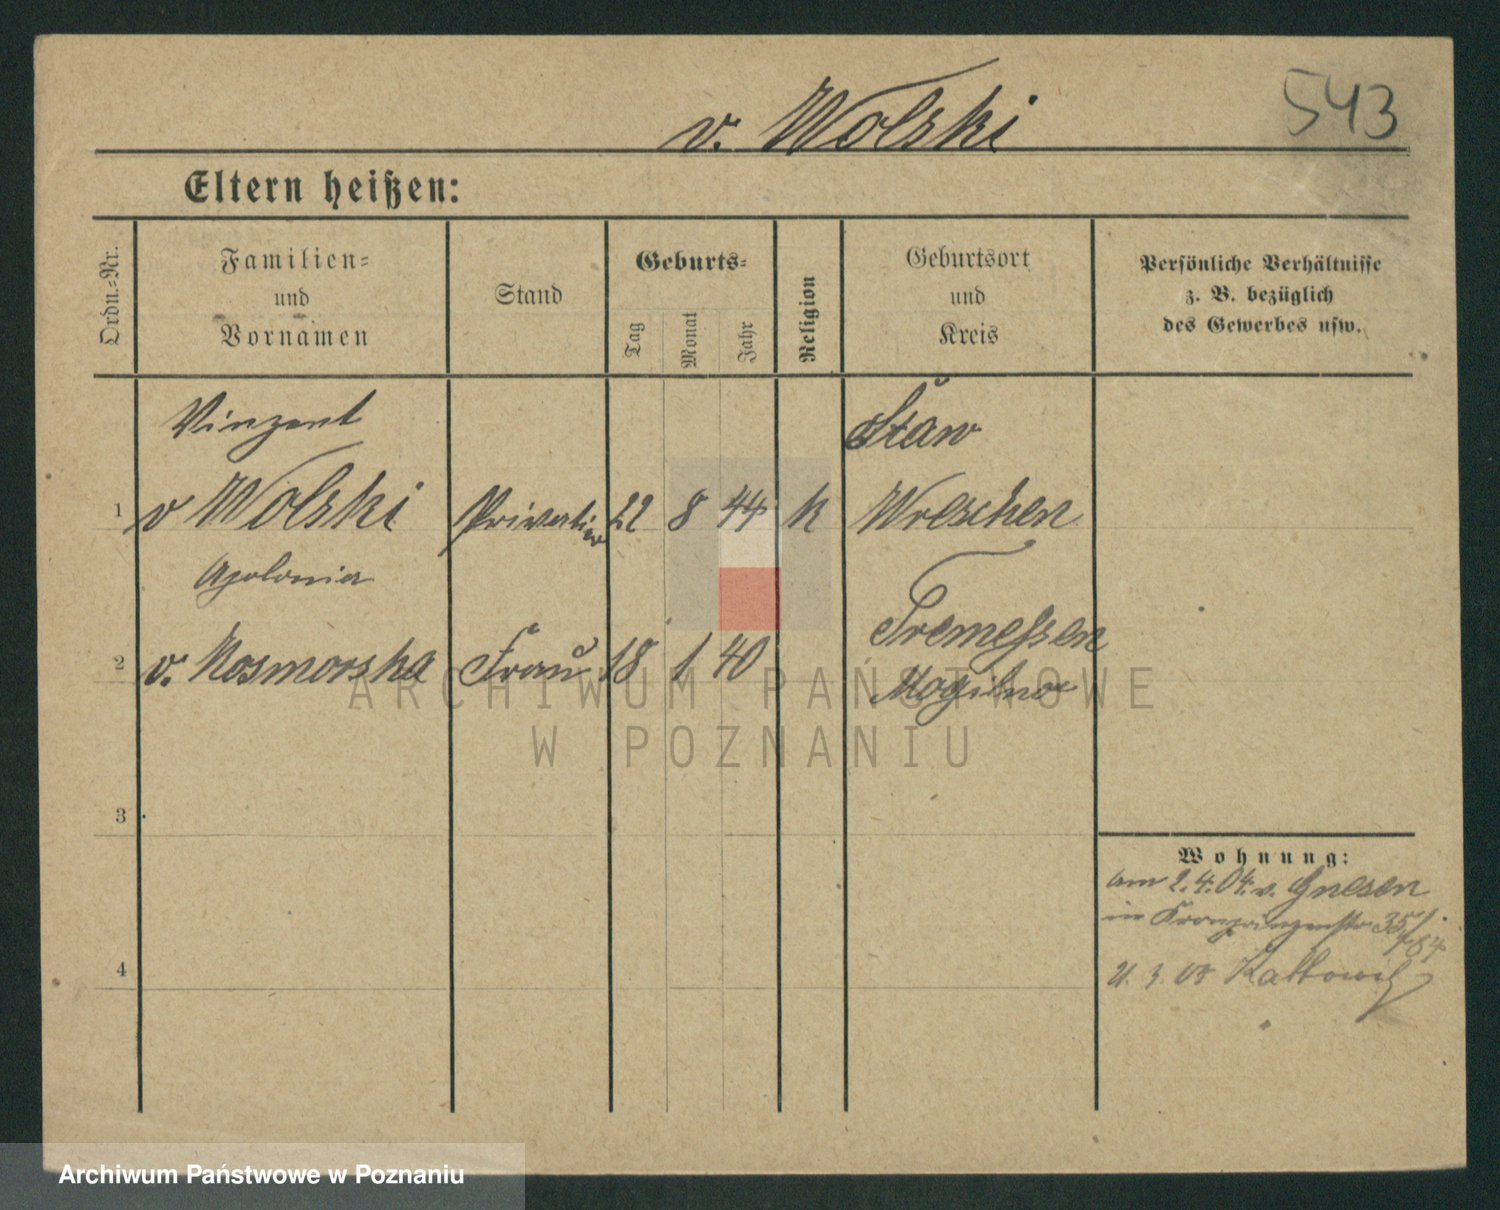 v. Wolski
543
Eltern heißen:
Ordn.-Nr.
Familien-
und
Vornamen
Stand
Geburts-
Tag
Monat
Jahr
Religion
Geburtsort
und
Kreis
Persönliche Verhältnisse
z. B. bezüglich
des Gewerbes usw.
Vinzent
Staw
1 v Wolski Privatier 22 8 44 k Wreschen
Apolonia
Tremessen
2 v. Kosmorska Frau 18 1 40
Mogilno
ARCHIWUM PAŃSTWOWE
W POZNANIU
3
Wohnung:
am 2.4.04. v. Gnesen
in Kronprinzenstr 35
4
Kattowitz
Archiwum Państwowe w Poznaniu